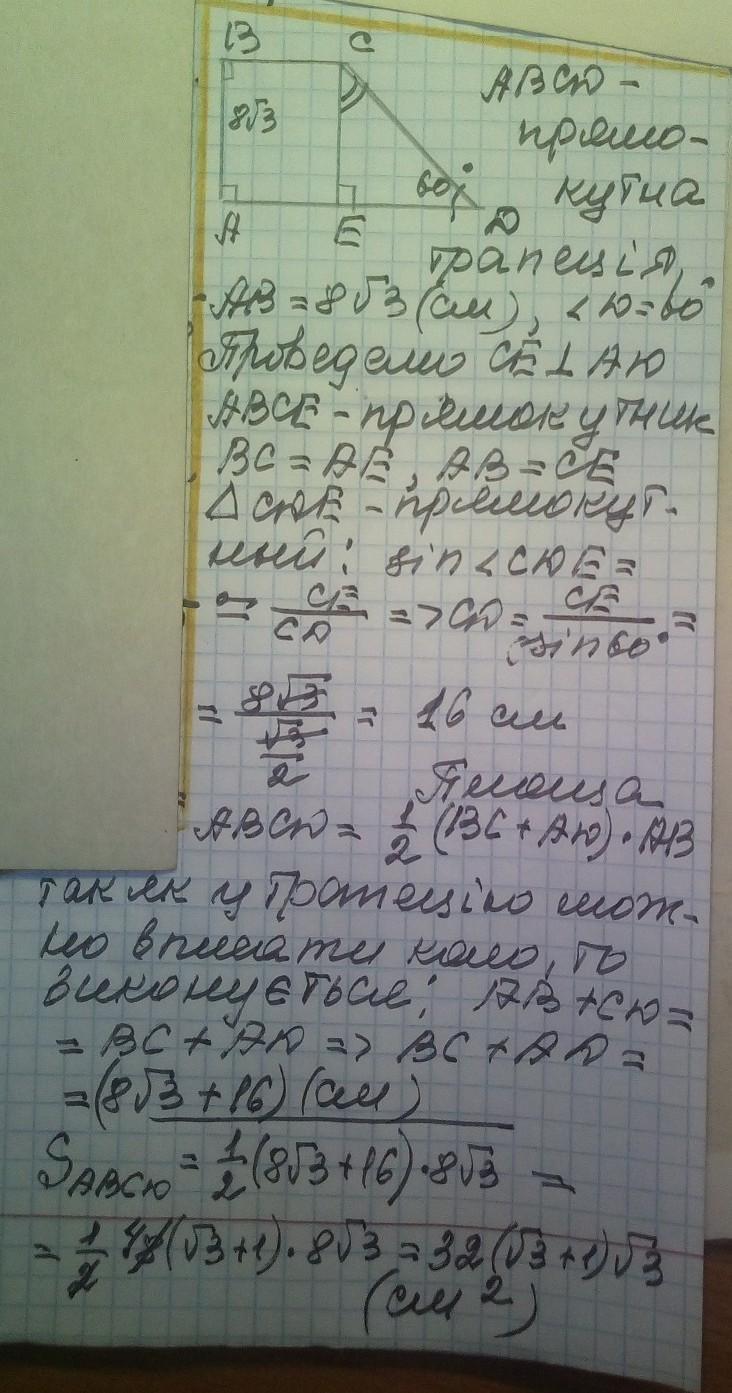 B C
8√3
60°
A E D
ABCD -
прямо-
кутна
трапеція,
AB = 8√3 (см), <D=60°
Проведемо CE⊥AD
ABCE - прямокутник
BC = AE, AB = CE
△CDE - прямокут-
ный: sin<CDE =
= CE/CD => CD = CE/sin60° =
= 8√3/(√3/2) = 16 см
Площа
ABCD = 1/2 (BC + AD)·AB
так як у трапецію мож-
но вписати коло, то
виконується: AB + CD =
= BC + AD => BC + AD =
= (8√3 + 16) (см)
S ABCD = 1/2 (8√3 + 16)·8√3 =
= 1/2 (√3 + 1)·8√3 = 32(√3 + 1)√3
(см²)